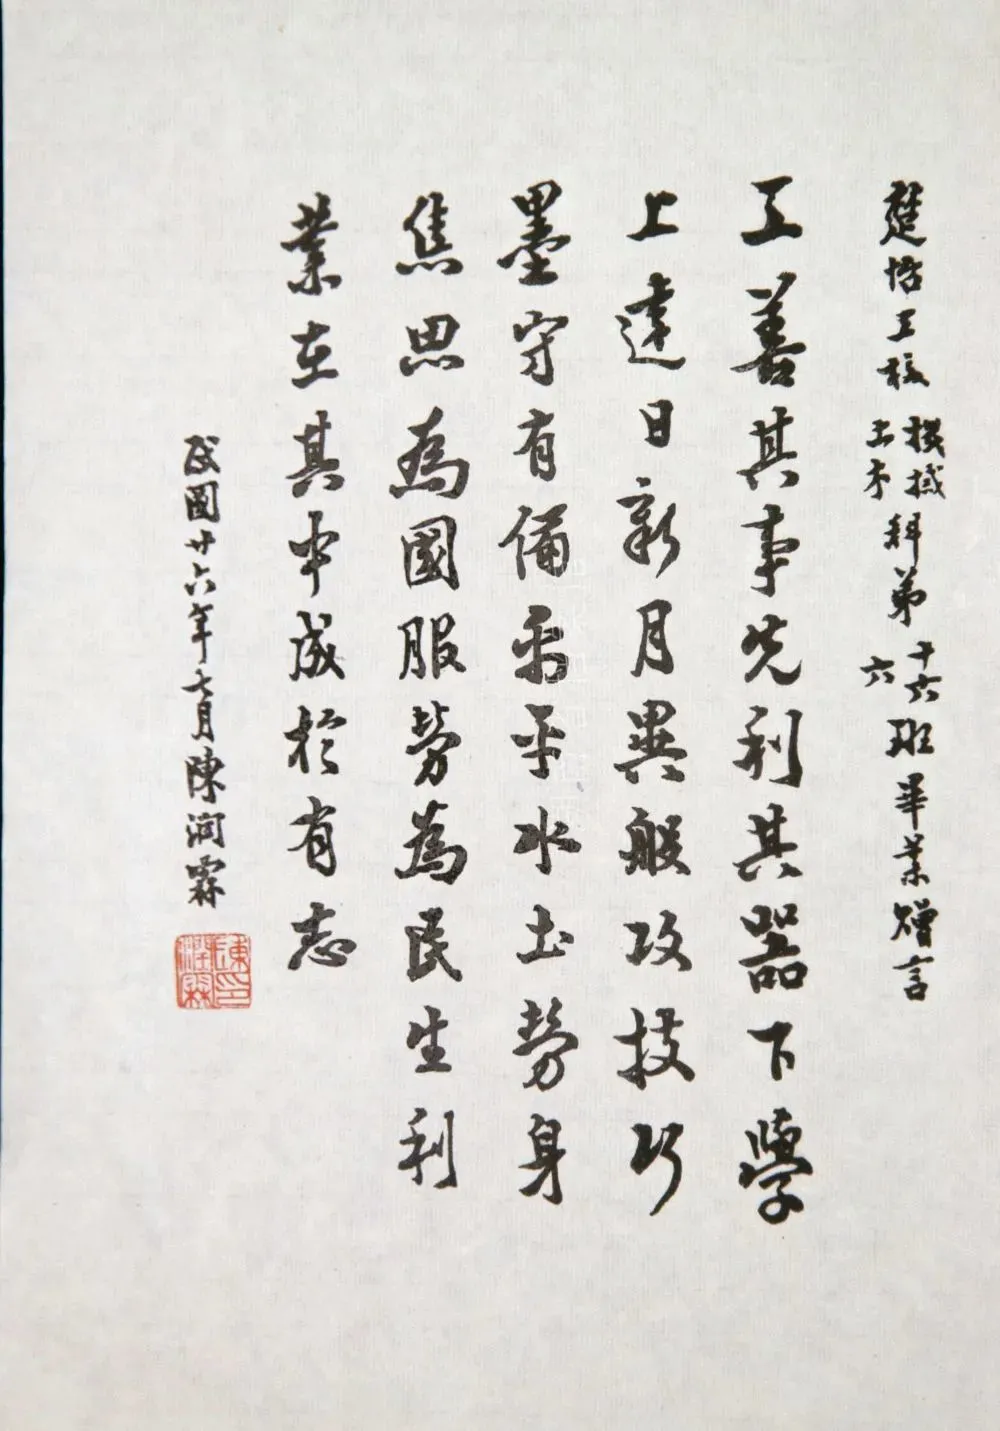 楚怡工校機械土木科第十六六班畢業贈言
工善其事先利其器下學
上達日新月異般攻技巧
墨守有備禹平水土勞身
焦思為國服勞為民生利
業在其中成於有志
民國廿六年七月陳潤霖
陳印潤霖